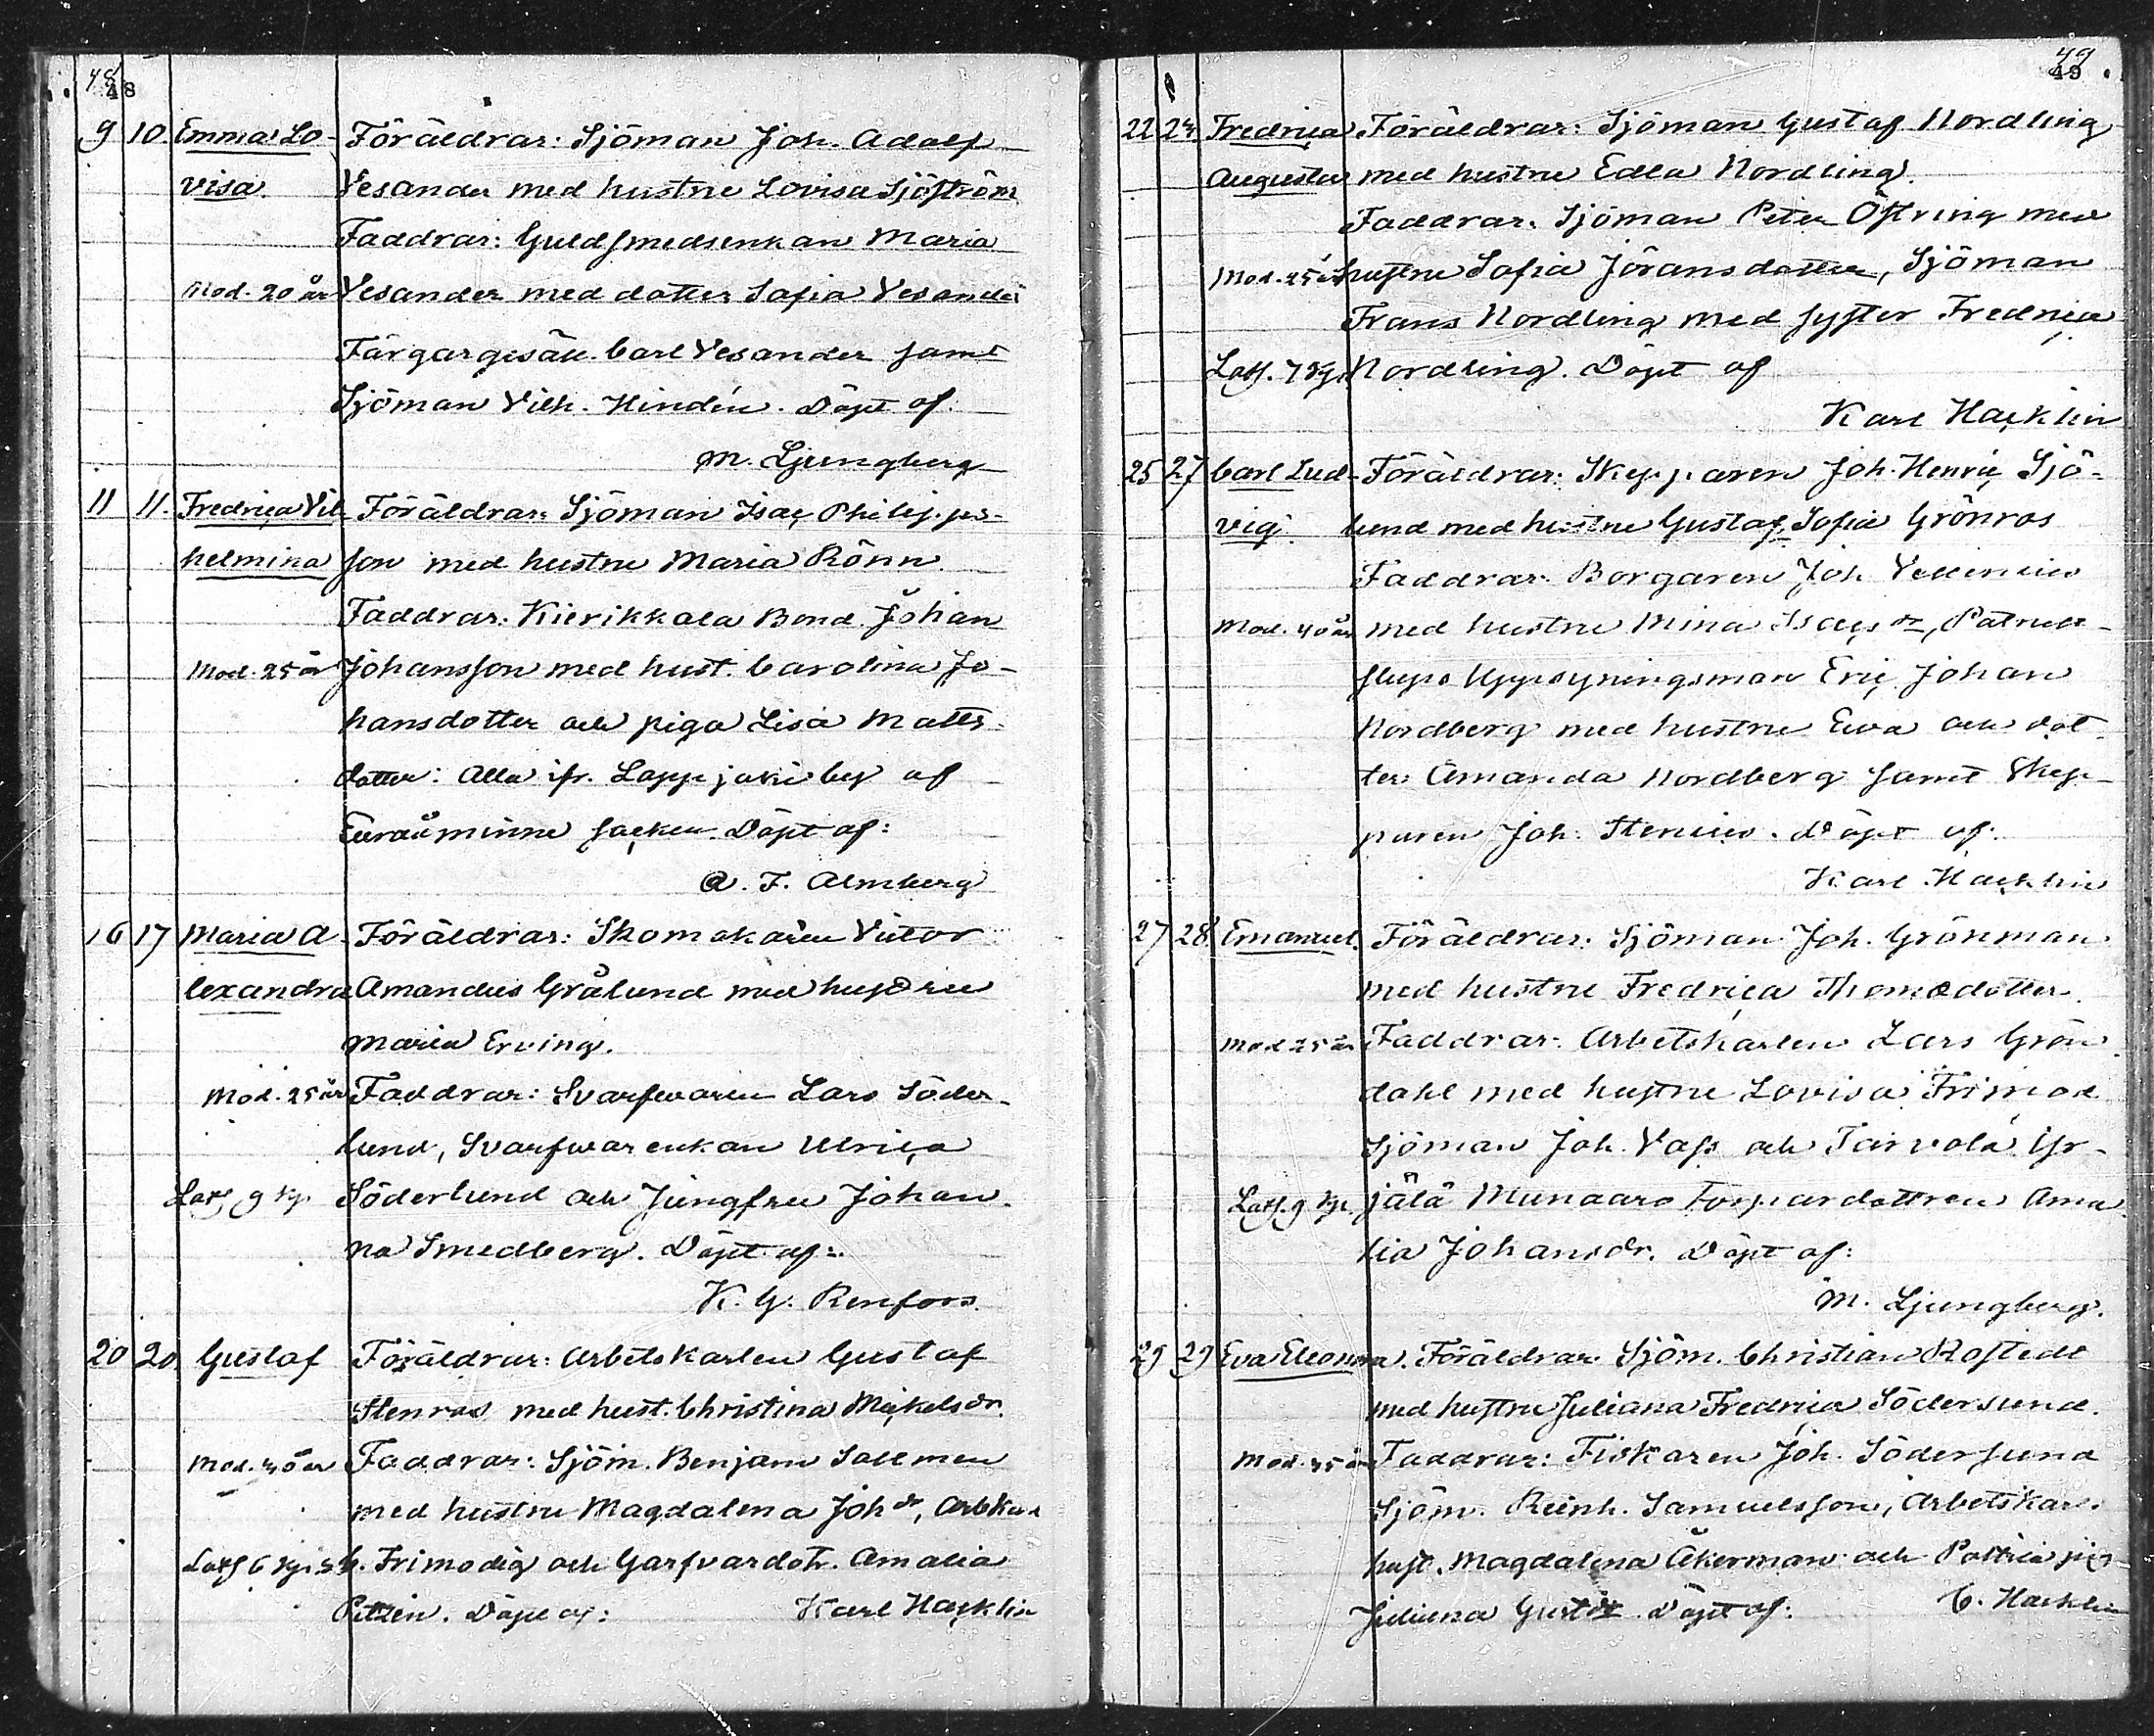 48
48
9 10. Emma Lo- Föräldrar: Sjöman Joh. Adolf
visa. Vesander med hustru Lovisa Sjöström
Faddrar: Guldsmedsenkan Maria
Mod. 20 år Vesander med dotter Sofia Vesander
Färgargesäll. Carl Vesander samt
Sjöman Vilh. Hindén. Döpt af:
M. Ljungberg
11 11. Fredrica Vil- Föräldrar: Sjöman Isac Philipps-
helmina son med hustru Maria Rönn.
Faddrar: Kierikkala Bond. Johan
Mod. 25 år Johansson med hust. Carolina Jo-
hansdotter och piga Lisa Matts-
dotter: Alla ifr. Lappijoki by af
Euraåminne socken. Döpt af:
A. F. Almberg
16 17 Maria A- Föräldrar: Skomakaren Victor
lexandra Amandus Grålund med hustru
Maria Erving.
Mod. 25 år Faddrar: Svarfwaren Lars Söder-
lund, Svarfwarenkan Ulrica
Latf. 9 kp. Söderlund och Jungfru Johan-
na Smedberg. Döpt af:
K. G. Renfors.
20 20. Gustaf Föräldrar: Arbetskarlen Gustaf
Stenros med hust. Christina Mickelsdr.
Mod. 40 år Faddrar: Sjöm. Benjam Sallmen
med hustru Magdalena Johdr, Arbkarl
Latf 6 kp. C. Frimodig och Garfvardotr. Amalia
Döpt af: Karl Hacklin
49
49
22 24. Fredrica Föräldrar: Sjöman Gustaf Nordling
Augusta med hustru Edla Nordling.
Faddrar: Sjöman Peter Östring med
Mod. 25 år hustru Sofia Jöransdotter, Sjöman
Frans Nordling med syster Fredrica
Latf. 7 kp. Nordling. Döpt af
Karl Hacklin
25 27 Carl Lud- Föräldrar: Skepparen Joh. Henric Sjö-
vig. lund med hustru Gustaf. Sofia Grönros
Faddrar: Borgaren Joh Vellenius
Mod. 40 år med hustru Mina Isacsdr, Patrull-
slups Uppsyningsman Eric Johan
Nordberg med hustru Eva och dot-
ter Amanda Nordberg samt Skep-
paren Joh. Stenius. Döpt af:
Karl Hacklin
27 28 Emanuel. Föräldrar: Sjöman Joh. Grönman
med hustru Fredrica Thomædotter.
Mod 25 år Faddrar: Arbetskarlen Lars Grön-
dahl med hustru Lovisa Frimod.
Sjöman Joh. Vass och Torvola Yr-
Latf. 9 kp. jälä Munaars Torpardottren Ama-
lia Johansdr. Döpt af:
M. Ljungberg.
29 29 Eva Eleonora. Föräldrar: Sjöm. Christian Rostedt
med hustru Juliana Fredrica Södersund.
Mod. 35 år Faddrar: Fiskaren Joh. Södersund
Sjöm. Reinh. Samuelsson, Arbetskar.
hust. Magdalena Åkerman och
Juliana Gustdr. Döpt af: C. Hacklin